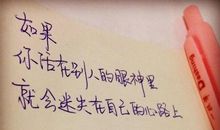 如果
你活在别人的眼神里
就会迷失在自己的心路上